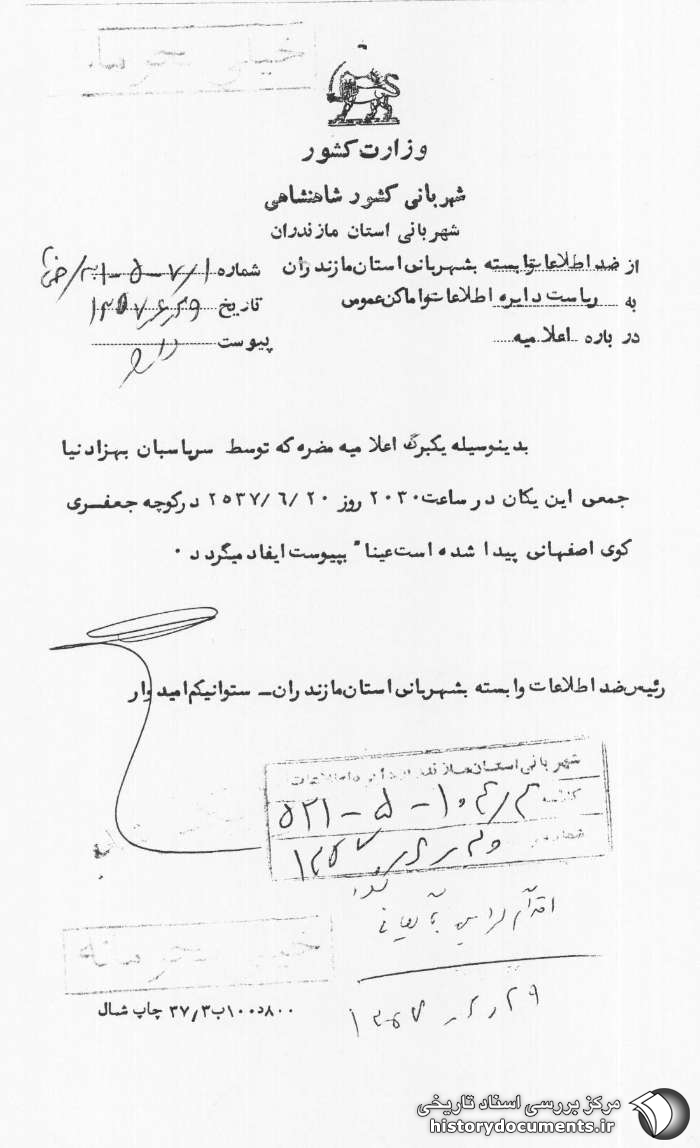 خیلی محرمانه
وزارت کشور
شهربانی کشور شاهنشاهی
شهربانی استان مازندران
از ضد اطلاعات وابسته بشهربانی استان مازندران
شماره
به ریاست دایره اطلاعات و اماکن عمومی
تاریخ
درباره اعلامیه
پیوست دارد
بدینوسیله یکبرگ اعلامیه مضره که توسط سرپاسبان بهزادنیا
جمعی این یکان در ساعت ۲۰۳۰ روز ۲۰/۶/۲۵۳۷ درکوچه جعفری
کوی اصفهانی پیدا شده است عینا" بپیوست ایفاد میگردد ۰
رئیس ضد اطلاعات وابسته بشهربانی استان مازندران ــ ستوانیکم امیدوار
شهربانی استان مازندران
۵۲۱-۵-۱۰۴/۳
اقدام
خیلی محرمانه
۸۰۰د۱۰۰ب۳۷/۳ چاپ شمال
مرکز بررسی اسناد تاریخی
historydocuments.ir